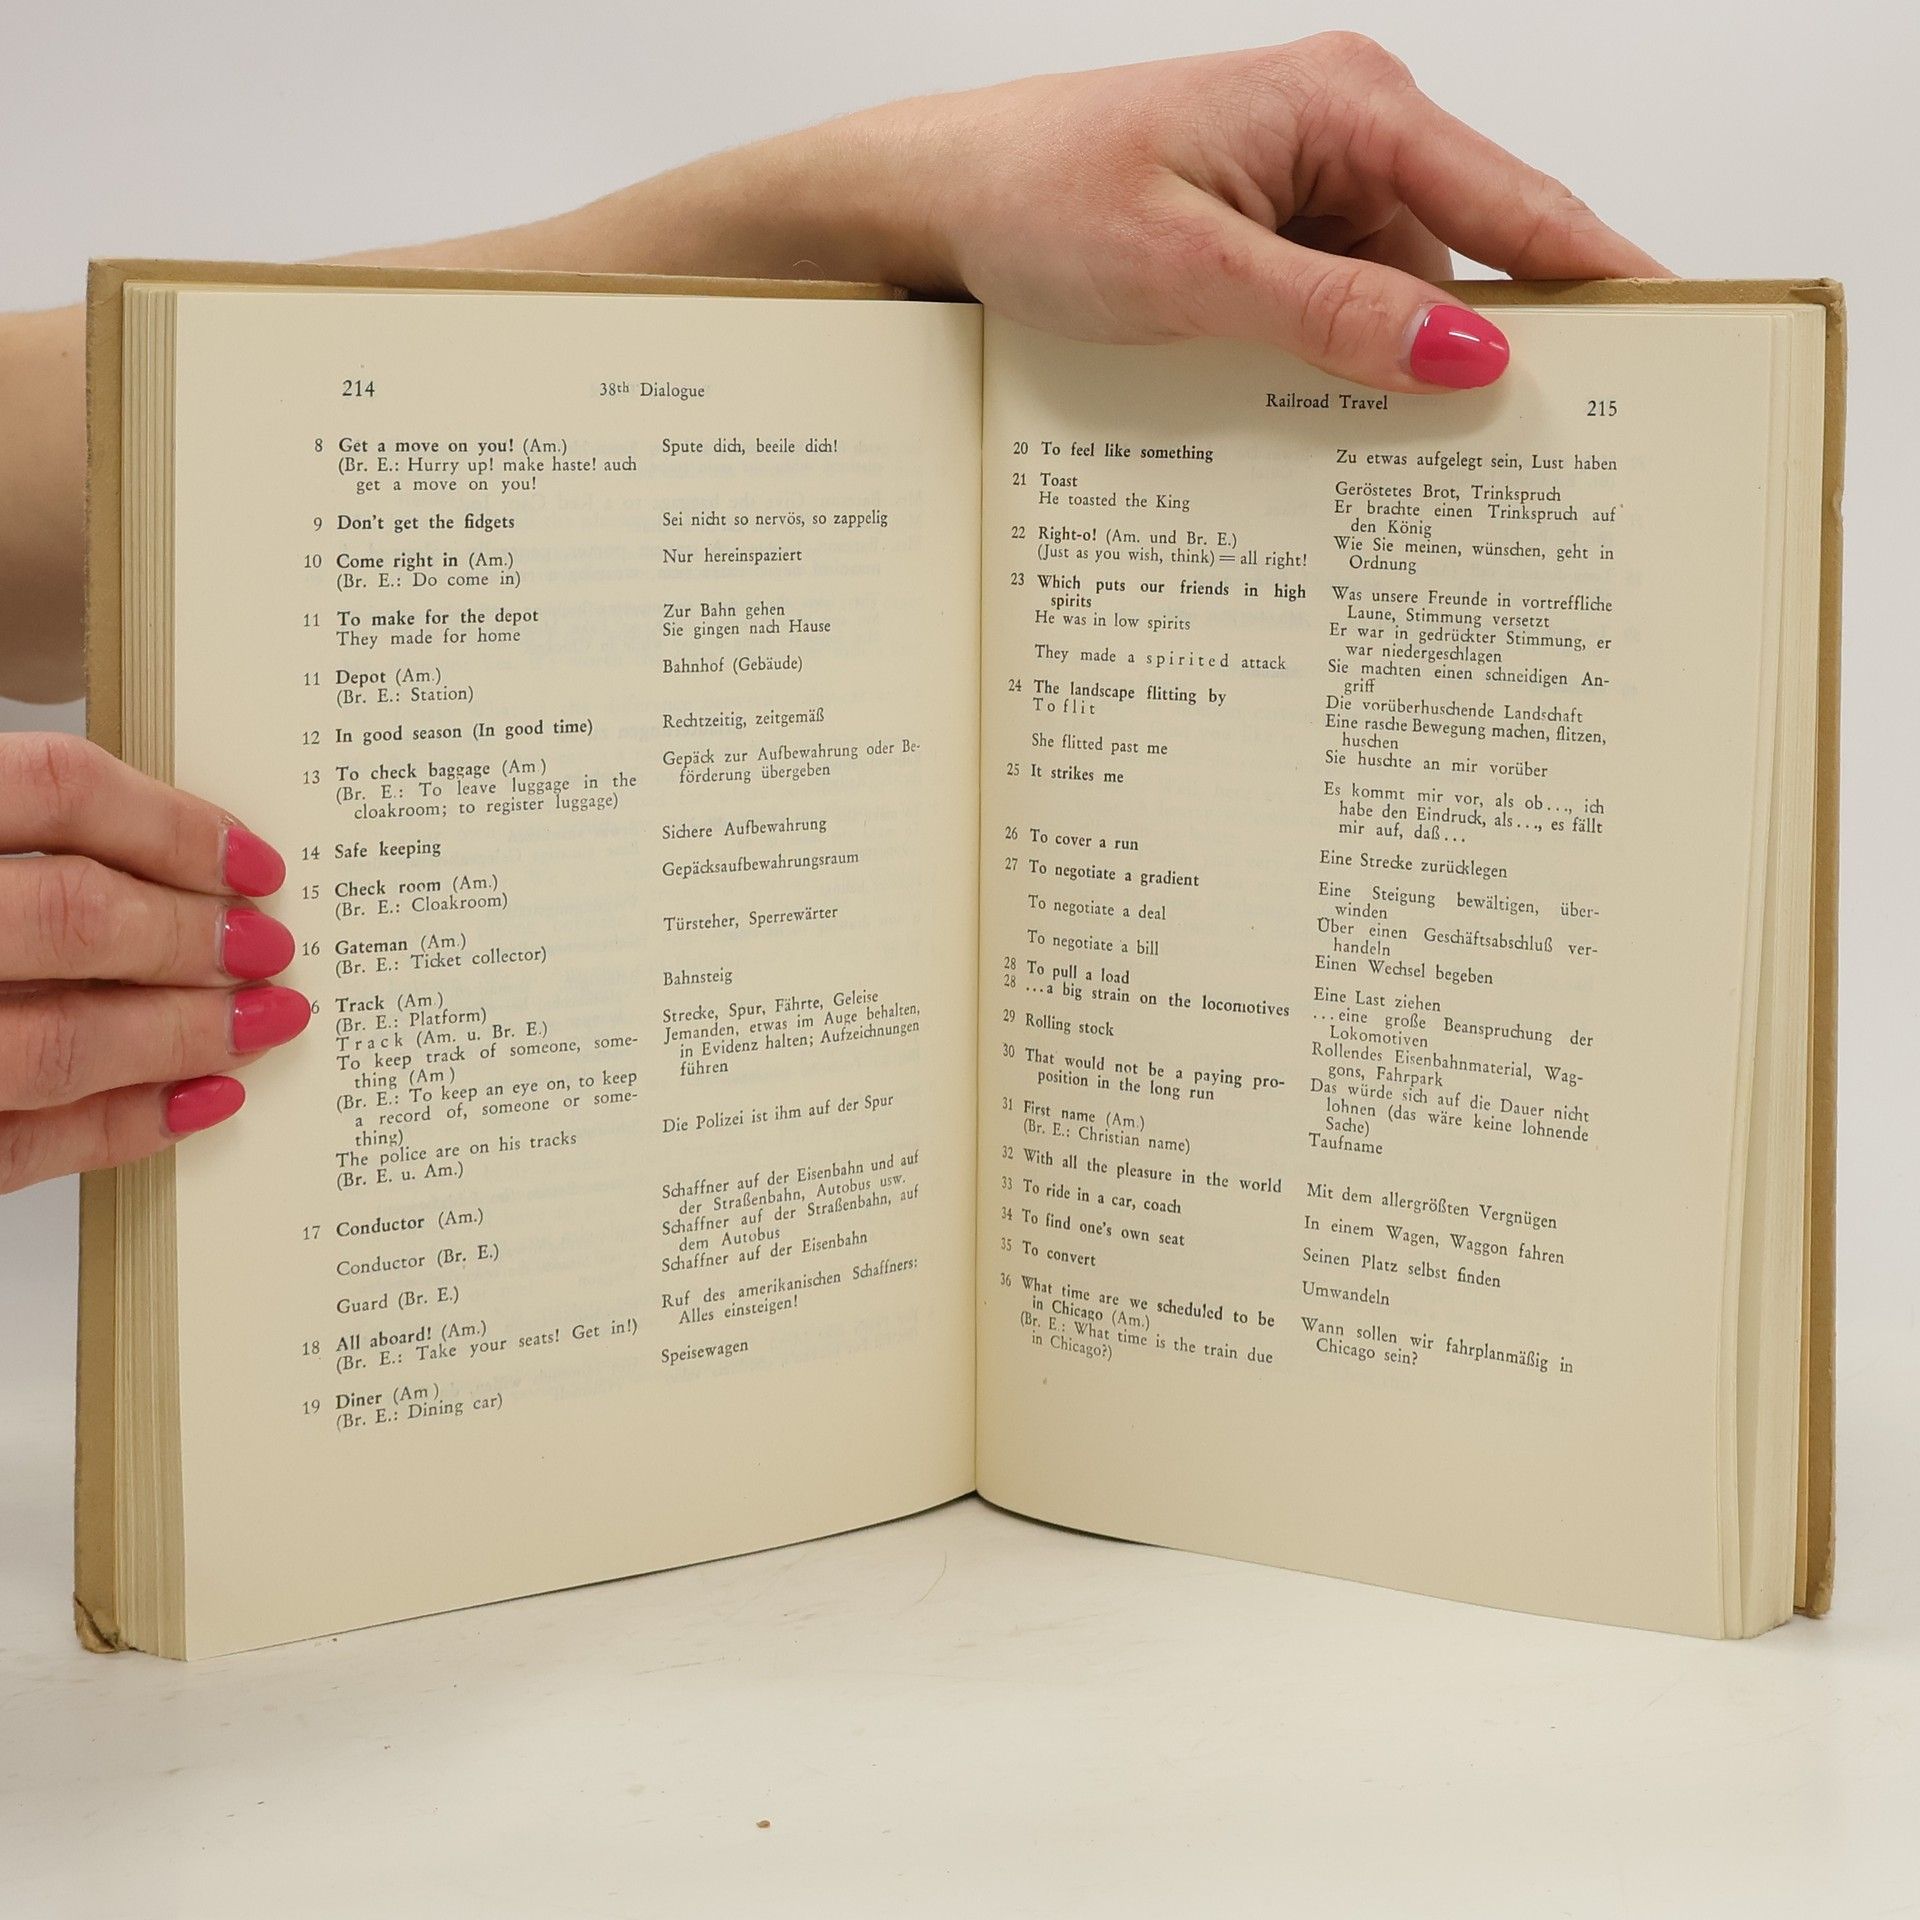 214
38th Dialogue
8 Get a move on you! (Am.)
(Br. E.: Hurry up! make haste! auch
get a move on you!
Spute dich, beeile dich!
9 Don't get the fidgets
Sei nicht so nervös, so zappelig
10 Come right in (Am.)
(Br. E.: Do come in)
Nur hereinspaziert
11 To make for the depot
They made for home
Zur Bahn gehen
Sie gingen nach Hause
11 Depot (Am.)
(Br. E.: Station)
Bahnhof (Gebäude)
12 In good season (In good time)
Rechtzeitig, zeitgemäß
13 To check baggage (Am )
(Br. E.: To leave luggage in the
cloakroom; to register luggage)
Gepäck zur Aufbewahrung oder Be-
förderung übergeben
14 Safe keeping
Sichere Aufbewahrung
15 Check room (Am.)
(Br. E.: Cloakroom)
Gepäcksaufbewahrungsraum
16 Gateman (Am.)
(Br. E.: Ticket collector)
Türsteher, Sperrewärter
6 Track (Am.)
(Br. E.: Platform)
Track (Am. u. Br. E.)
To keep track of someone, some-
thing (Am )
(Br. E.: To keep an eye on, to keep
a record of, someone or some-
thing)
The police are on his tracks
(Br. E. u. Am.)
Bahnsteig
Strecke, Spur, Fährte, Geleise
Jemanden, etwas im Auge behalten,
in Evidenz halten; Aufzeichnungen
führen
Die Polizei ist ihm auf der Spur
17 Conductor (Am.)
Schaffner auf der Eisenbahn und auf
der Straßenbahn, Autobus usw.
Conductor (Br. E.)
Schaffner auf der Straßenbahn, auf
dem Autobus
Guard (Br. E.)
Schaffner auf der Eisenbahn
18 All aboard! (Am.)
(Br. E.: Take your seats! Get in!)
Ruf des amerikanischen Schaffners:
Alles einsteigen!
19 Diner (Am )
(Br. E.: Dining car)
Speisewagen
Railroad Travel
215
20 To feel like something
Zu etwas aufgelegt sein, Lust haben
21 Toast
He toasted the King
Geröstetes Brot, Trinkspruch
Er brachte einen Trinkspruch auf
den König
22 Right-o! (Am. und Br. E.)
(Just as you wish, think) = all right!
Wie Sie meinen, wünschen, geht in
Ordnung
23 Which puts our friends in high
spirits
He was in low spirits
They made a spirited attack
Was unsere Freunde in vortreffliche
Laune, Stimmung versetzt
Er war in gedrückter Stimmung, er
war niedergeschlagen
Sie machten einen schneidigen An-
griff
24 The landscape flitting by
To flit
She flitted past me
Die vorüberhuschende Landschaft
Eine rasche Bewegung machen, flitzen,
huschen
Sie huschte an mir vorüber
25 It strikes me
Es kommt mir vor, als ob..., ich
habe den Eindruck, als..., es fällt
mir auf, daß...
26 To cover a run
Eine Strecke zurücklegen
27 To negotiate a gradient
To negotiate a deal
To negotiate a bill
Eine Steigung bewältigen, über-
winden
Über einen Geschäftsabschluß ver-
handeln
Einen Wechsel begeben
28 To pull a load
Eine Last ziehen
28 ...a big strain on the locomotives
...eine große Beanspruchung der
Lokomotiven
29 Rolling stock
Rollendes Eisenbahnmaterial, Wag-
gons, Fahrpark
30 That would not be a paying pro-
position in the long run
Das würde sich auf die Dauer nicht
lohnen (das wäre keine lohnende
Sache)
31 First name (Am.)
(Br. E.: Christian name)
Taufname
32 With all the pleasure in the world
Mit dem allergrößten Vergnügen
33 To ride in a car, coach
In einem Wagen, Waggon fahren
34 To find one's own seat
Seinen Platz selbst finden
35 To convert
Umwandeln
36 What time are we scheduled to be
in Chicago (Am.)
(Br. E.: What time is the train due
in Chicago?)
Wann sollen wir fahrplanmäßig in
Chicago sein?